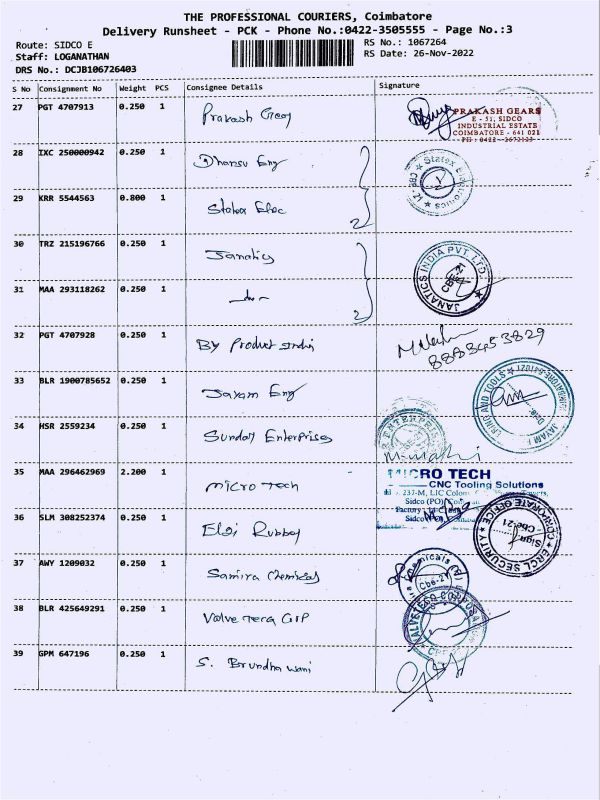 THE PROFESSIONAL COURIERS, Coimbatore
Delivery Runsheet - PCK - Phone No.:0422-3505555 - Page No.:3
Route: SIDCO E
RS No.: 1067264
Staff: LOGANATHAN
RS Date: 26-Nov-2022
DRS No.: DCJB106726403
S No Consignment No Weight PCS Consignee Details Signature
27 PGT 4707913 0.250 1 Prakash Gears
PRAKASH GEARS
E - 51, SIDCO
INDUSTRIAL ESTATE
COIMBATORE - 641 021
PH : 0422 - 2672123
28 IXC 250000942 0.250 1 Dhansu Eng
29 KRR 5544563 0.800 1 Statex Elec
2
Statex Electronics
30 TRZ 215196766 0.250 1 Janatics
31 MAA 293118262 0.250 1 -do-
2
JANATICS INDIA PVT. LTD.
CBE-21
32 PGT 4707928 0.250 1 By Product India
8883453829
33 BLR 1900785652 0.250 1 Jayam Eng
34 HSR 2559234 0.250 1 Sunday Enterprises
35 MAA 296462969 2.200 1 Micro Tech
MICRO TECH
CNC Tooling Solutions
237-M, LIC Colony
Sidco (PO)
Factory :
Sidco
36 SLM 308252374 0.250 1 Elgi Rubber
ERCL SECURITY
CORPORATE OFFICE
Sign
Cbe-21
37 AWY 1209032 0.250 1 Samira Chemicals
Chemicals
Cbe-21
38 BLR 425649291 0.250 1 Valve Tera Crp
39 GPM 647196 0.250 1 S. Brundha wani